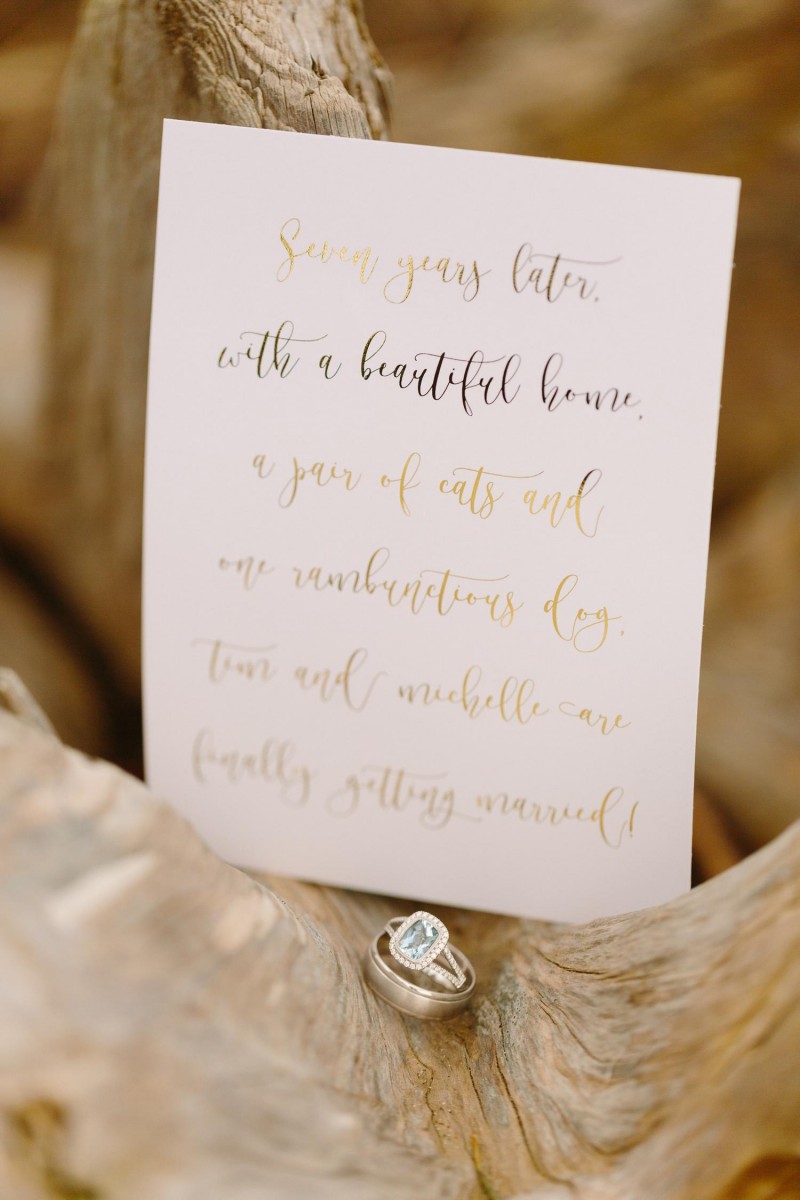 Seven years later,
with a beautiful home,
a pair of cats and
one rambunctious dog,
tim and michelle are
finally getting married!